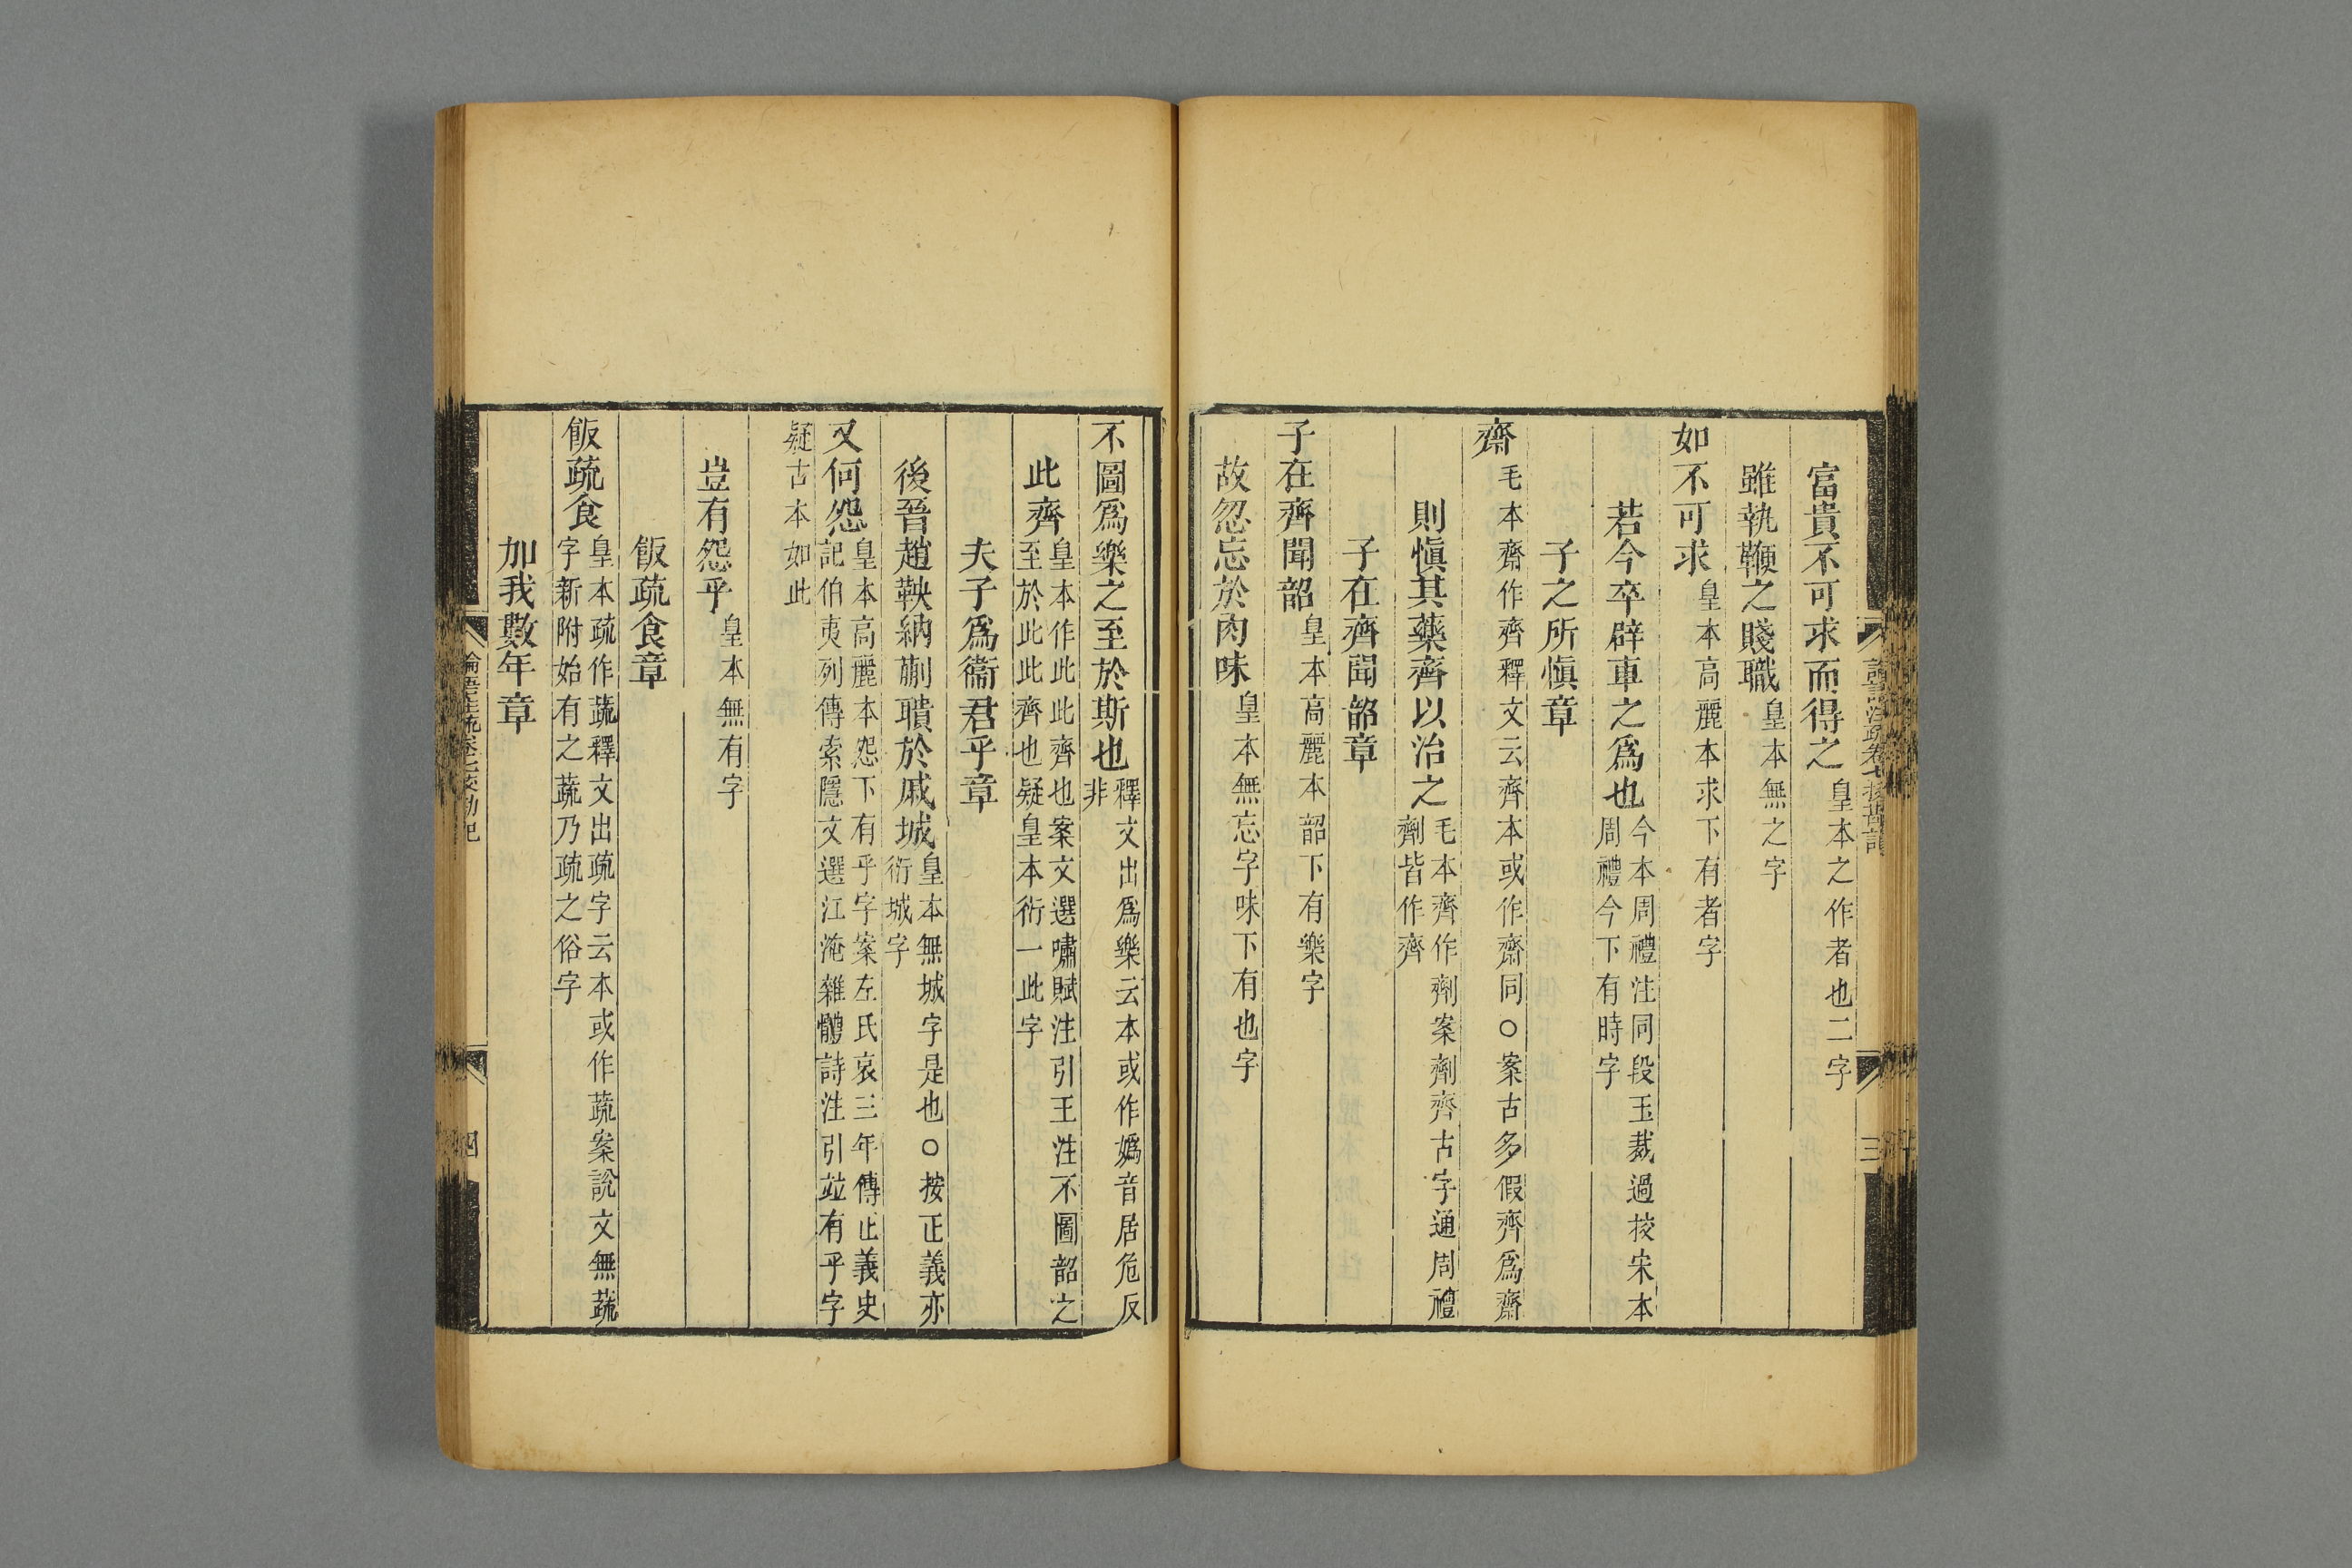 富貴不可求而得之皇本之作者也二字
雖執鞭之賤職皇本無之字
如不可求皇本高麗本求下有者字
若今卒辟車之爲也今本周禮注同段玉裁過挍宋本周禮今下有時字
子之所愼章
齋毛本齋作齊釋文云齊本或作齋同○案古多假齊爲齋
則愼其藥齊以治之毛本齊作劑案劑齊古字通周禮劑皆作齊
子在齊聞韶章
子在齊聞韶皇本高麗本韶下有樂字
故忽忘於肉味皇本無忘字味下有也字
三
不圖爲樂之至於斯也釋文出爲樂云本或作嬀音居危反非
此齊皇本作此此齊也案文選嘯賦注引王注不圖韶之至於此此齊也疑皇本衍一此字
夫子爲衞君乎章
後晉趙鞅納蒯聵於戚城皇本無城字是也○按正義亦衍城字
又何怨皇本高麗本怨下有乎字案左氏哀三年傳正義史記伯夷列傳索隱文選江淹雜體詩注引竝有乎字
疑古本如此
豈有怨乎皇本無有字
飯疏食章
飯疏食皇本疏作蔬釋文出疏字云本或作蔬案說文無蔬字新附始有之蔬乃疏之俗字
加我數年章
論語注疏卷七挍勘記
四